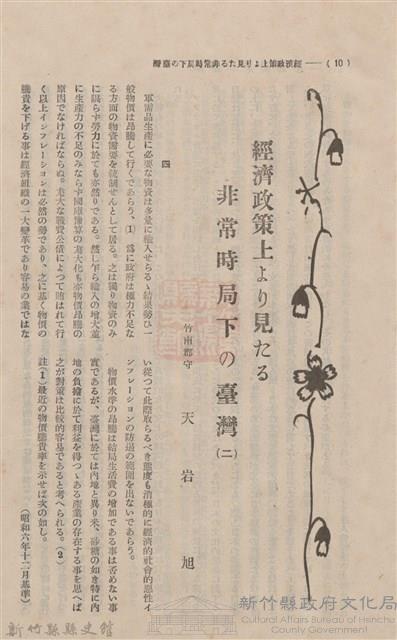 (10)──經濟政策上より見たる非常時局下の臺灣
經濟政策上より見たる
非常時局下の臺灣(二)
竹南郡守 天岩 旭
四
軍需品生産に必要な物資は多量に輸入せらるゝ結果勢ひ一
般物價は昂騰して行くであらう、(1) 爲に政府は極力不足な
る方面の物資需要を統制せんとして居る。之は獨り物資のみ
に限らず勞力に於ても亦然りである。然し乍ら輸入の增大並
に生産力の不足のみならず國庫豫算の尨大化も亦物價昂騰の
原因でなければならぬ。尨大な戰費公債によつて賄はれて行
く以上インフレーションは必然の勢であり、之に基く物價の
騰貴を下げる事は經濟組織の一大變革であり容易の業ではな
い從つて此際取らるべき態度も消極的に經濟的社會的惡性イ
ンフレーションの防遏の範圍を出ないであらう。
物價水準の昂騰は結局生活費の增加である事は否めない事
實であるが、臺灣に於ては内地と異り米、砂糖の如き特に内
地の負擔に於て利益を得つゝある産業の存在する事を思へば
之が對策は比較的容易であると考へられる。(2)
註(1)最近の物價騰貴率を示せば次の如し。
(昭和六年十二月基準)
新竹縣縣史館
新竹縣政府文化局
Cultural Affairs Bureau of Hsinchu
County Government